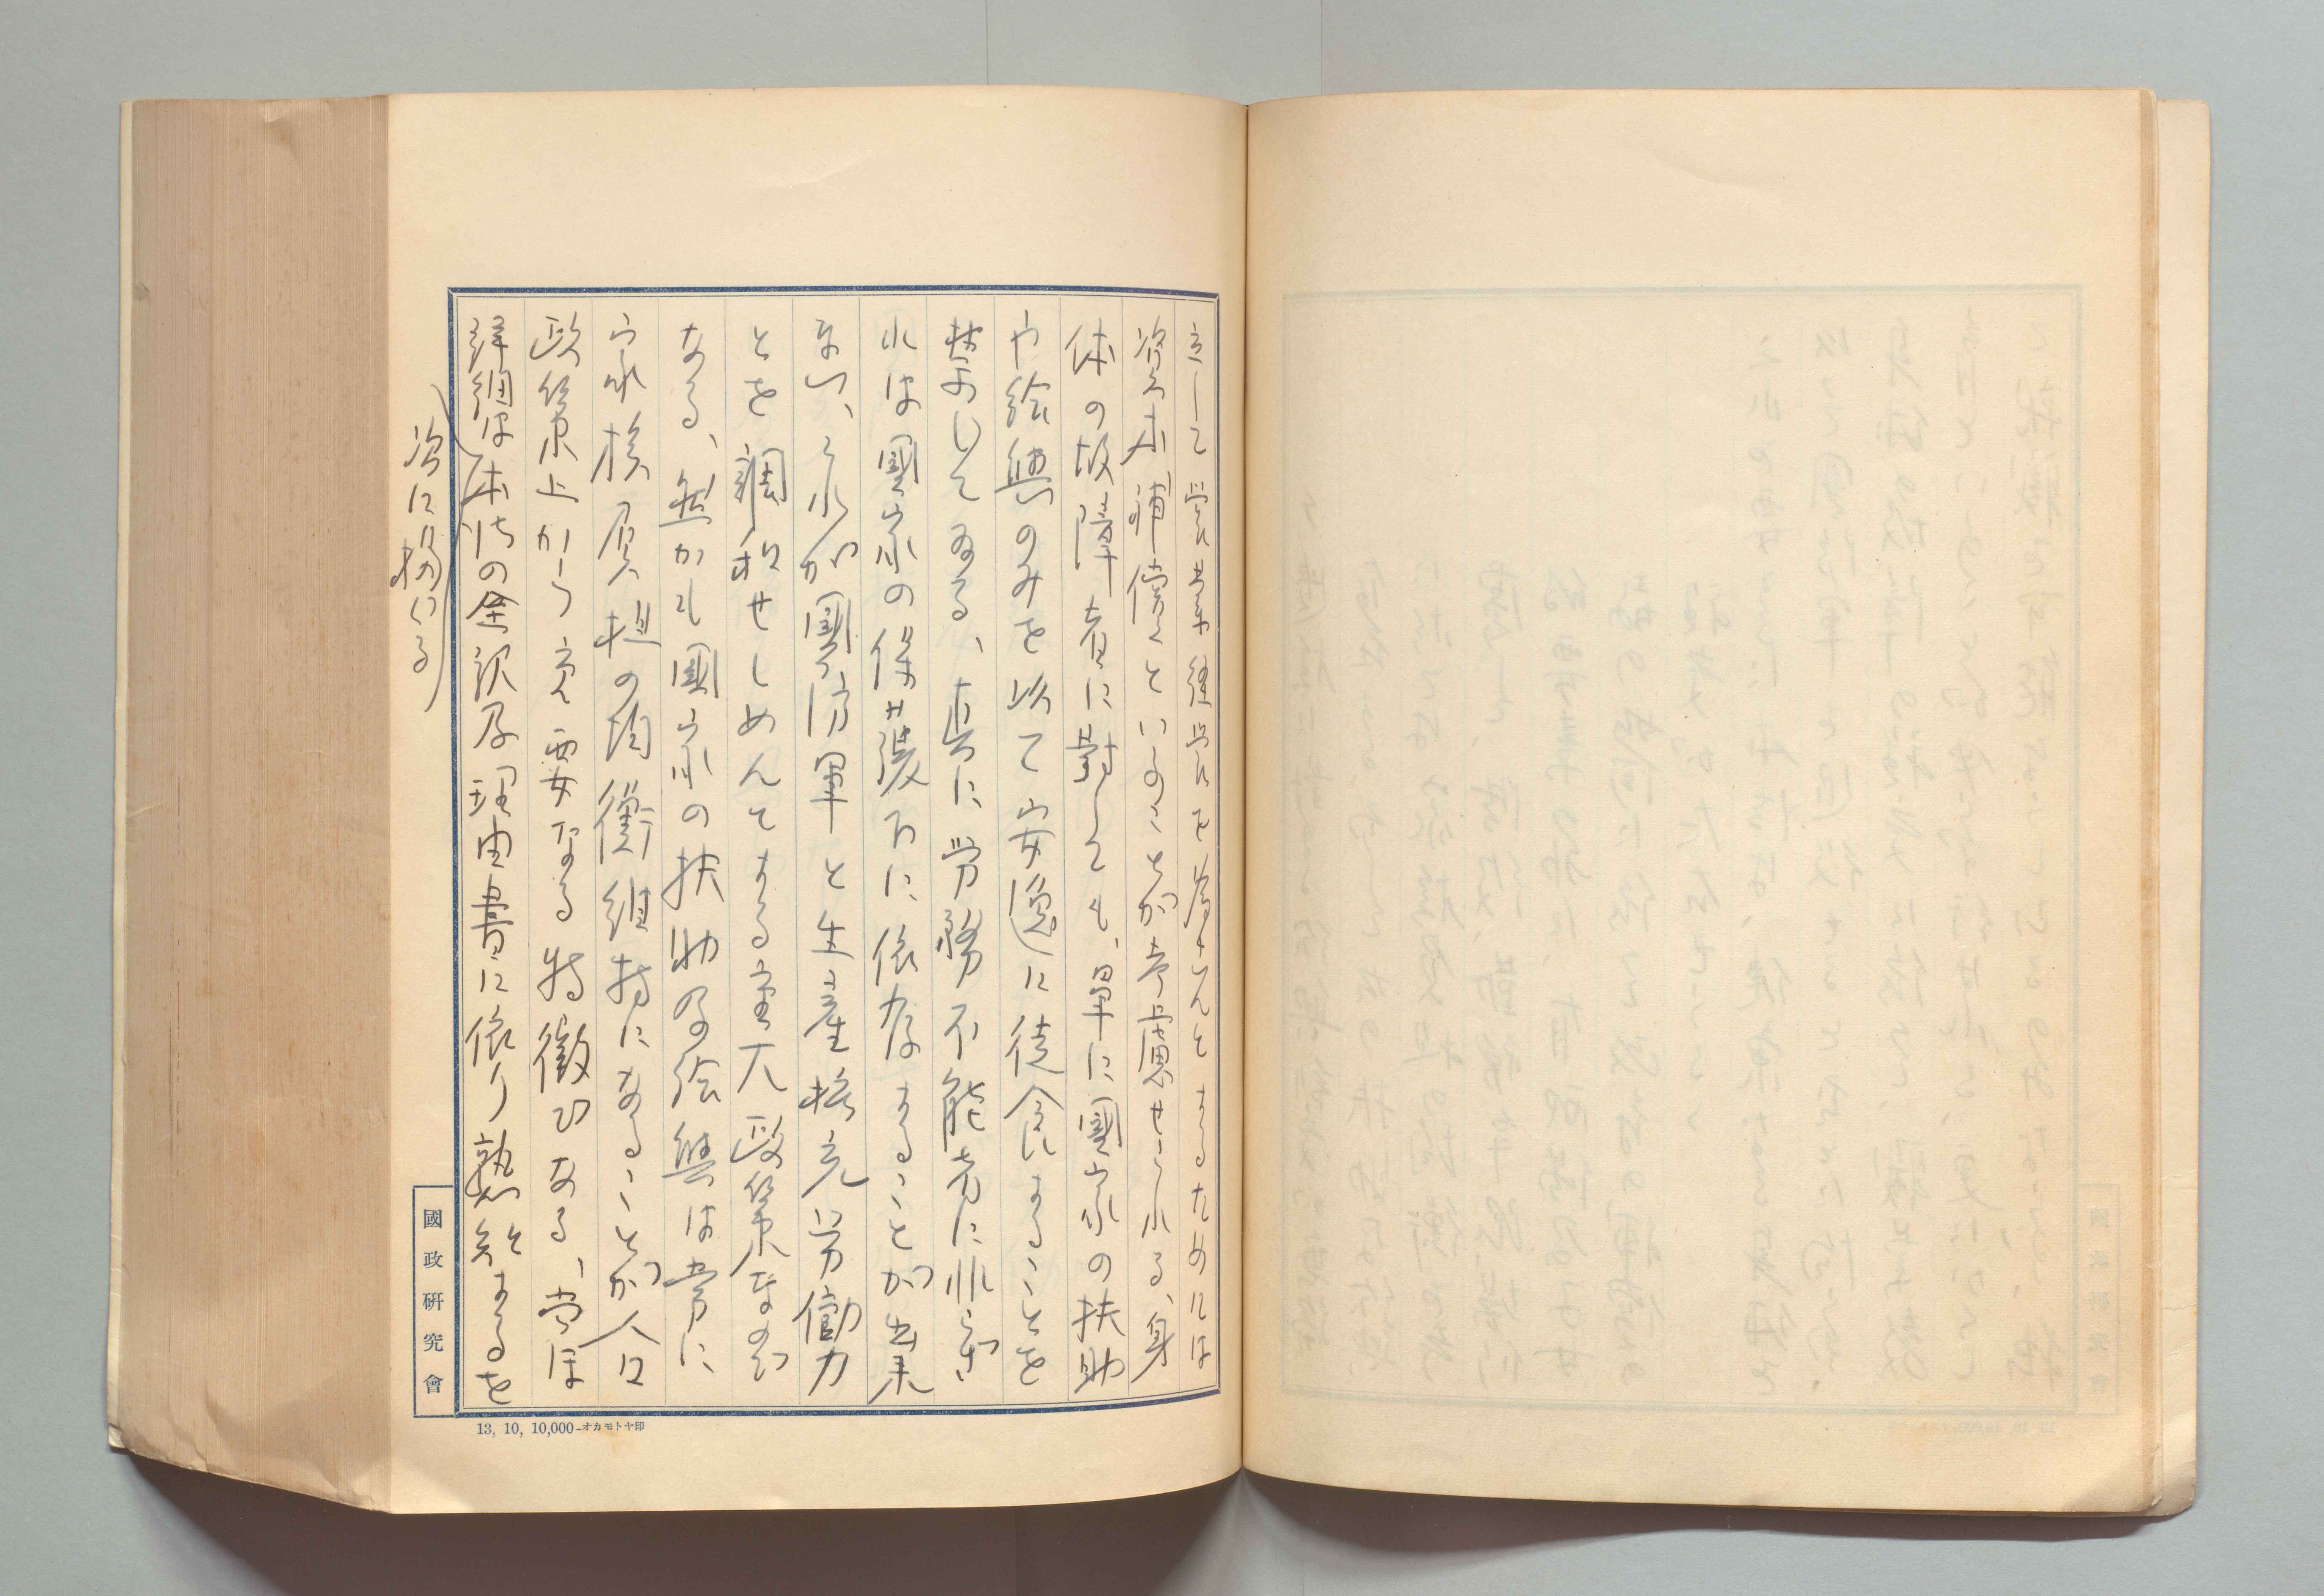 立して営業経営を為さんとするためには
資本補償といふことが考慮せられる、身
体の故障者に対しても、単に國家の扶助
や給與のみを以て安逸に徒食することを
禁止してゐる、真に労務不能者に非らざ
れは國家の保護下に依存することが出来
ない、これが國防軍と生産拡充労働力
とを調和せしめんとする重大政策なので
ある、然かも國家の扶助及給與は常に
家族負担の均衡維持にあることが人口
政策上から充要なる特徴ひある、尚ほ
詳細は本法の全訳及理由書に依り熟知するを
次に揚げる
國政研究會
13, 10, 10,000-オカモトヤ印